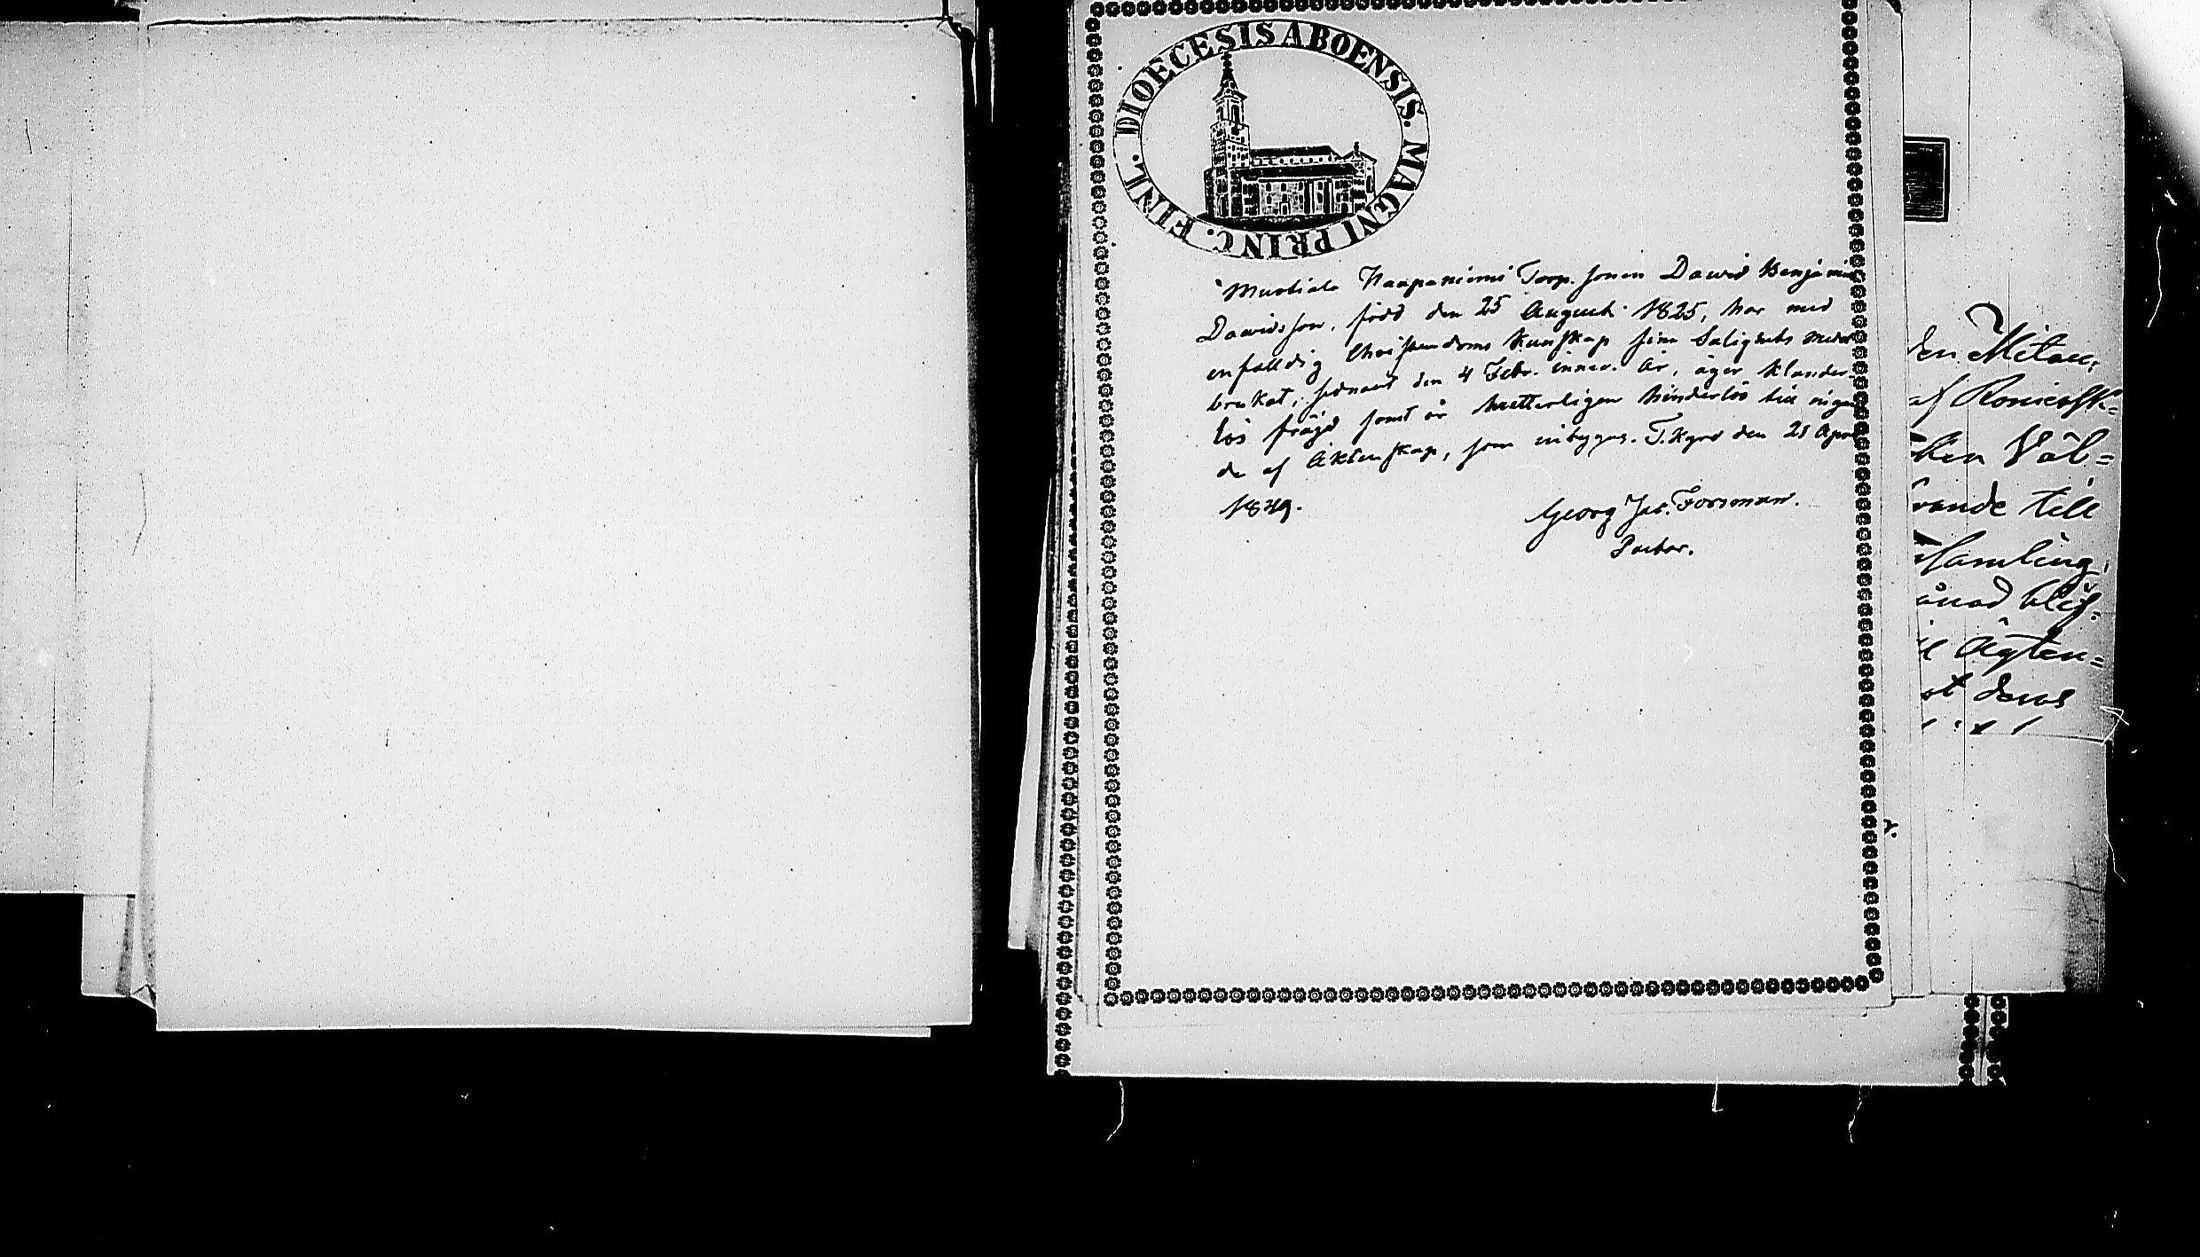 DIOECESIS ABOENSIS. MAGNI PRINC. FINL.
Mustiala Haapaniemi Torp. sonen David Benjamin
Davidsson, född den 25 Augusti 1825, har med
enfaldig Christendoms kunskap sina Salighets medel
brukat, senast den 4 Febr. innev. år, äger klander-
lös fräjd samt är hinderlös till
de af Äktenskap, som T.Kyrd den 21 April
1849.
Georg Jac. Forsman.
Pastor.
den Mitau,
af
ken Väl=
rande till
samling
ånad
Ägten=